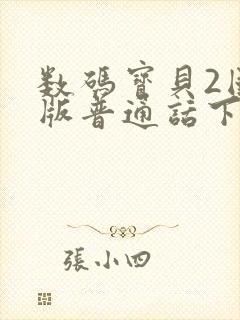 数碼寶貝2
版普通話下
張小四